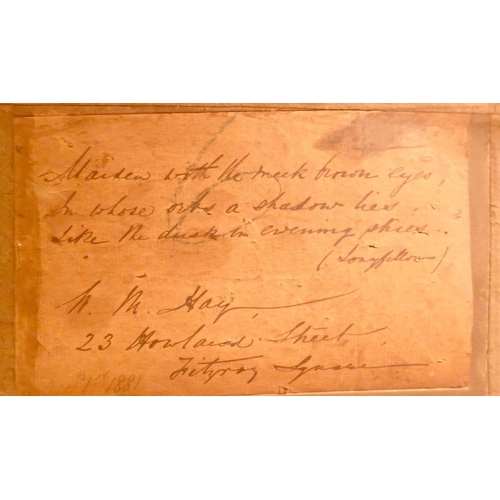 Maiden with the meek brown eyes,
In whose orbs a shadow lies,
Like the dusk in evening skies..
(Longfellow)
W. M. Hay,
23 Howland Street,
Fitzroy Square
1881